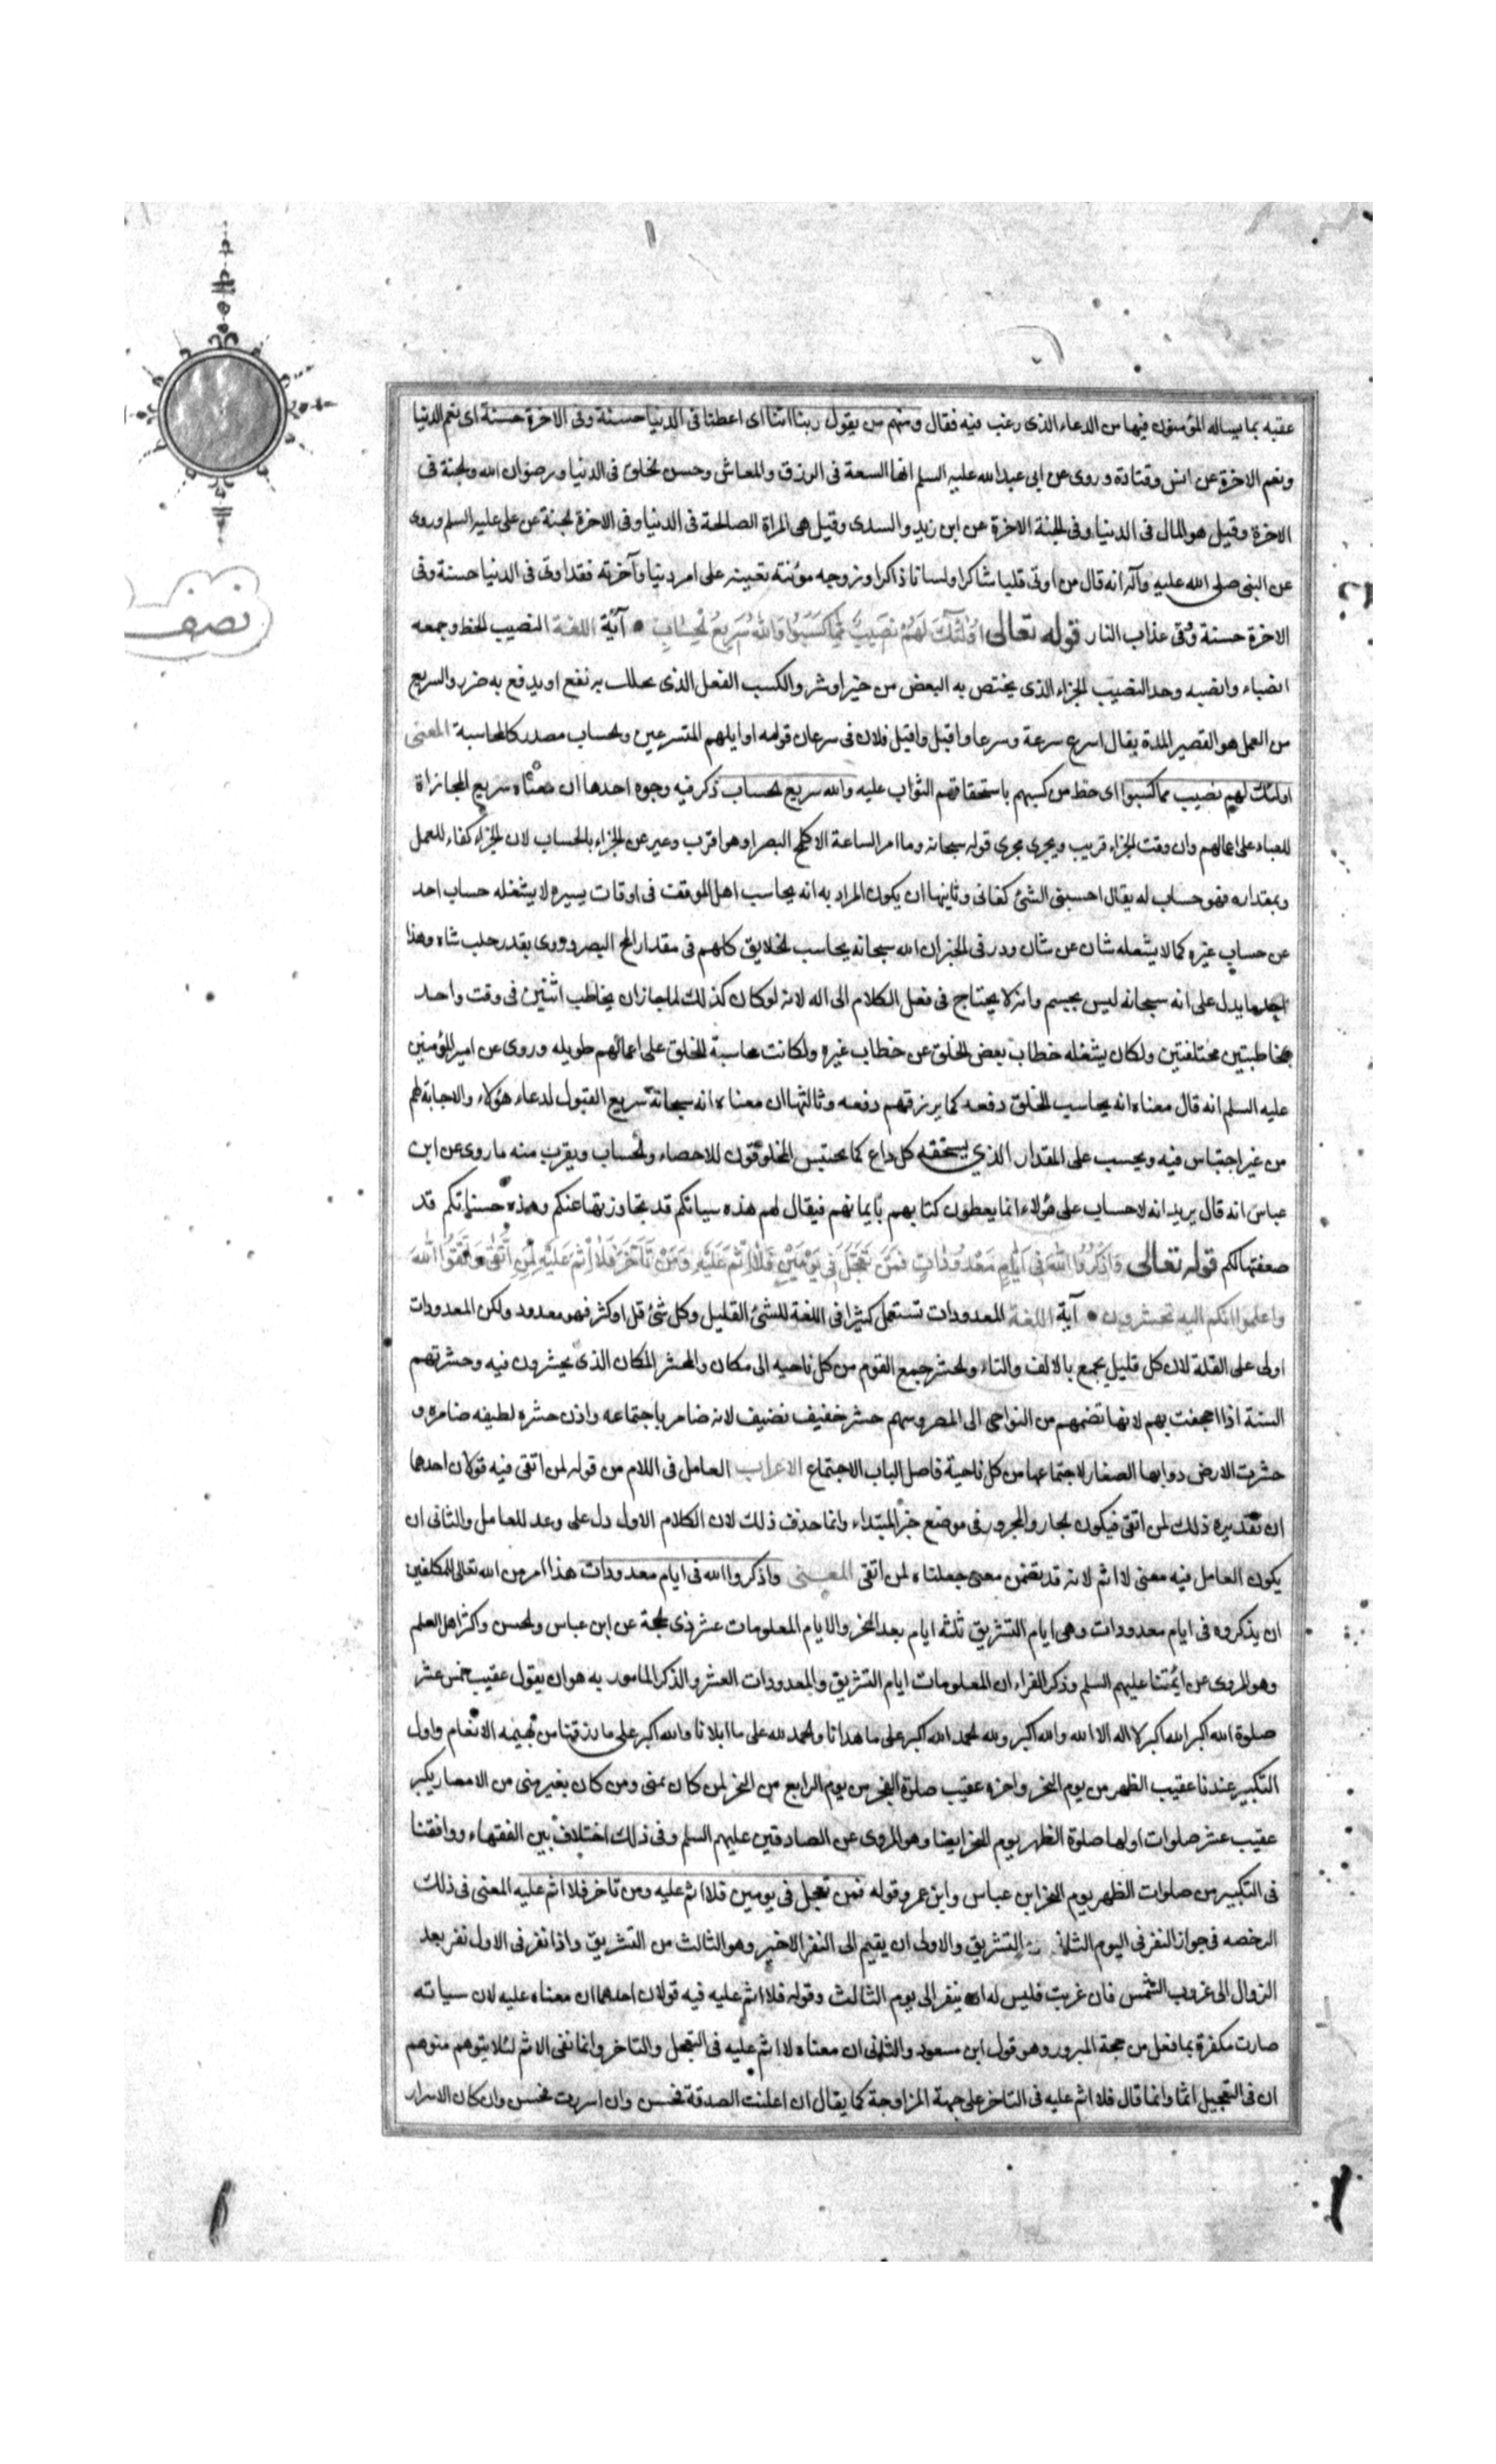 عقبه بما يساله المؤمنون فيها من الدعاء الذى رغب فيه فقال ومنهم من يقول ربنا اتنا اى اعطنا فى الدنيا حسنة وفى الاخرة حسنة اى نعم الدنيا
ونعم الاخرة عن انس وقتادة وروى عن ابى عبدالله عليه السلم انها السعة فى الرزق والمعاش وحسن الخلق فى الدنيا ورضوان الله والجنة فى
الاخرة وقيل هو المال فى الدنيا وفى الجنة الاخرة عن ابن زيد والسدى وقيل هى المراة الصالحة فى الدنيا وفى الاخرة الجنة عن على عليه السلم وروى
عن النبى صلى الله عليه وآله انه قال من اوتى قلبا شاكرا ولسانا ذاكرا وزوجه مؤمنة تعينه على امر دنيا وآخرته فقد اوتى فى الدنيا حسنة وفى
الاخرة حسنة وقى عذاب النار قوله تعالى اُولٰئِكَ لَهُمْ نَصِيبٌ مِمَّا كَسَبُوا وَاللهُ سَرِيعُ الْحِسَابِ آية اللغة النصيب الحظ وجمعه
انصباء وانصبه وحد النصيب الجزاء الذى يختص به البعض من خير او شر والكسب الفعل الذى يجلب به نفع او يدفع به ضرر والسريع
من العمل هو القصير المدة يقال اسرع سرعة وسرعا واقبل واقبل فلان فى سرعان قومه اى اوايلهم المتسرعين والحساب مصدر كالمحاسبة المعنى
اولئك لهم نصيب مما كسبوا اى حظ من كسبهم باستحقاقهم الثواب عليه والله سريع الحساب ذكر فيه وجوه احدها ان معناه سريع المجازاة
للعباد على اعمالهم وان وقت الجزاء قريب ويجرى مجرى قوله سبحانه وما امر الساعة الا كلمح البصر او هو اقرب وعبر عن الجزاء بالحساب لان الجزاء كفاء للعمل
وبمقداره فهو حساب له يقال احسبنى الشئ كفانى وثاينها ان يكون المراد به انه يحاسب اهل الموقف فى اوقات يسيره لا يشغله حساب احد
عن حساب غيره كما لا يشغله شان عن شان وورد فى الخبر ان الله سبحانه يحاسب الخلايق كلهم فى مقدار لمح البصر وروى بقدر حلب شاه وهذا
احد ما يدل على انه سبحانه ليس بجسم وانه لا يحتاج فى فعل الكلام الى اله لانه لو كان كذلك لما جاز ان يخاطب اثنين فى وقت واحد
بمخاطبتين مختلفتين ولكان يشغله خطاب بعض الخلق عن خطاب غيره ولكانت محاسبة الخلق على اعمالهم طويله وروى عن امير المؤمنين
عليه السلم انه قال معناه انه يحاسب الخلق دفعه كما يرزقهم دفعه وثالثها ان معناه انه سبحانه سريع القبول لدعاء هؤلاء والاجابة لهم
من غير احتباس فيه ويحسب على المقدار الذي يستحقه كل داع كما يحتبس المخلوقون للاحصاء والحساب ويقرب منه ما روى عن ابن
عباس انه قال يريد انه لا حساب على هؤلاء انما يعطون كتابهم بايمانهم فيقال لهم هذه سياتكم قد تجاوزتها عنكم وهذه حسناتكم قد
ضعفتها لكم قوله تعالى وَاذْكُرُوا اللهَ فِى اَيَّامٍ مَعْدُودَاتٍ فَمَنْ تَعَجَّلَ فِى يَوْمَيْنِ فَلَا اِثْمَ عَلَيْهِ وَمَنْ تَاَخَّرَ فَلَا اِثْمَ عَلَيْهِ لِمَنِ اتَّقَى وَاتَّقُوا اللهَ
واعلموا انكم اليه تحشرون آية اللغة المعدودات تستعمل كثيرا فى اللغة للشئ القليل وكل شئ قل او كثر فهو معدود ولكن المعدودات
اولى على القلة لان كل قليل يجمع بالالف والتاء والحشر جمع القوم من كل ناحيه الى مكان والمحشر المكان الذى يحشرون فيه وحشرتهم
السنة اذا اجحفت بهم لانها تضمهم من النواحى الى المصر وسهم حشر خفيف لانه ضامر باجتماعه واذن حشره لطيفه ضامره و
حشرت الارض دوابها الصغار لاجتماعها من كل ناحية فاصل الباب الاجتماع الاعراب العامل فى اللام من قوله لمن اتقى فيه قولان احدهما
ان تقديره ذلك لمن اتقى فيكون الجار والمجرور فى موضع خبر المبتداء وانما حذف ذلك لان الكلام الاول دل على وعد للعامل والثانى ان
يكون العامل فيه معنى لا اثم لانه قد تضمن معنى جعلناه لمن اتقى المعنى واذكروا الله فى ايام معدودات هذا امر من الله تعالى للمكلفين
ان يذكروه فى ايام معدودات وهى ايام التشريق ثلثه ايام بعد النحر والايام المعلومات عشر ذى الحجة عن ابن عباس والحسن واكثر اهل العلم
وهو المروى عن ائمتنا عليهم السلم وذكر الفراء ان المعلومات ايام التشريق والمعدودات العشر والذكر المامور به هو ان يقول عقيب خمس عشر
صلوة الله اكبر الله اكبر لا اله الا الله والله اكبر ولله الحمد الله اكبر على ما هدانا والحمد لله على ما ابلانا والله اكبر على ما رزقنا من بهيمه الانعام واول
التكبير عندنا عقيب الظهر من يوم النحر واخره عقيب صلوة الفجر من يوم الرابع من النحر لمن كان بمنى ومن كان بغير منى من الامصار يكبر
عقيب عشر صلوات اولها صلوة الظهر يوم النحر ايضا وهو المروى عن الصادقين عليهم السلم وفى ذلك اختلاف بين الفقهاء ووافقنا
فى التكبير من صلوات الظهر يوم النحر ابن عباس وابن عمر وقوله فمن تعجل فى يومين فلا اثم عليه ومن تاخر فلا اثم عليه المعنى فى ذلك
الرخصه فى جواز النفر فى اليوم الثانى التشريق والاولى ان يقيم الى النفر الاخير وهو الثالث من التشريق واذا نفر فى الاول نفر بعد
الزوال الى غروب الشمس فان غربت فليس له ان ينفر الى يوم الثالث وقوله فلا اثم عليه فيه قولان احدهما ان معناه عليه لان سياته
صارت مكفرة بما فعل من حجة المبرور وهو قول ابن مسعود والثانى ان معناه لا اثم عليه فى التعجل والتاخر وانما نفى الاثم لئلا يتوهم متوهم
ان فى التعجيل اثما وانما قال فلا اثم عليه فى التاخر على جهة المزاوجة كما يقال ان اعلنت الصدقة فحسن وان اسررت فحسن وان كان الاسرار
نصف